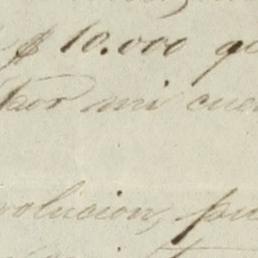 $ 10.000 qu
por mi cuen
volucion, pu